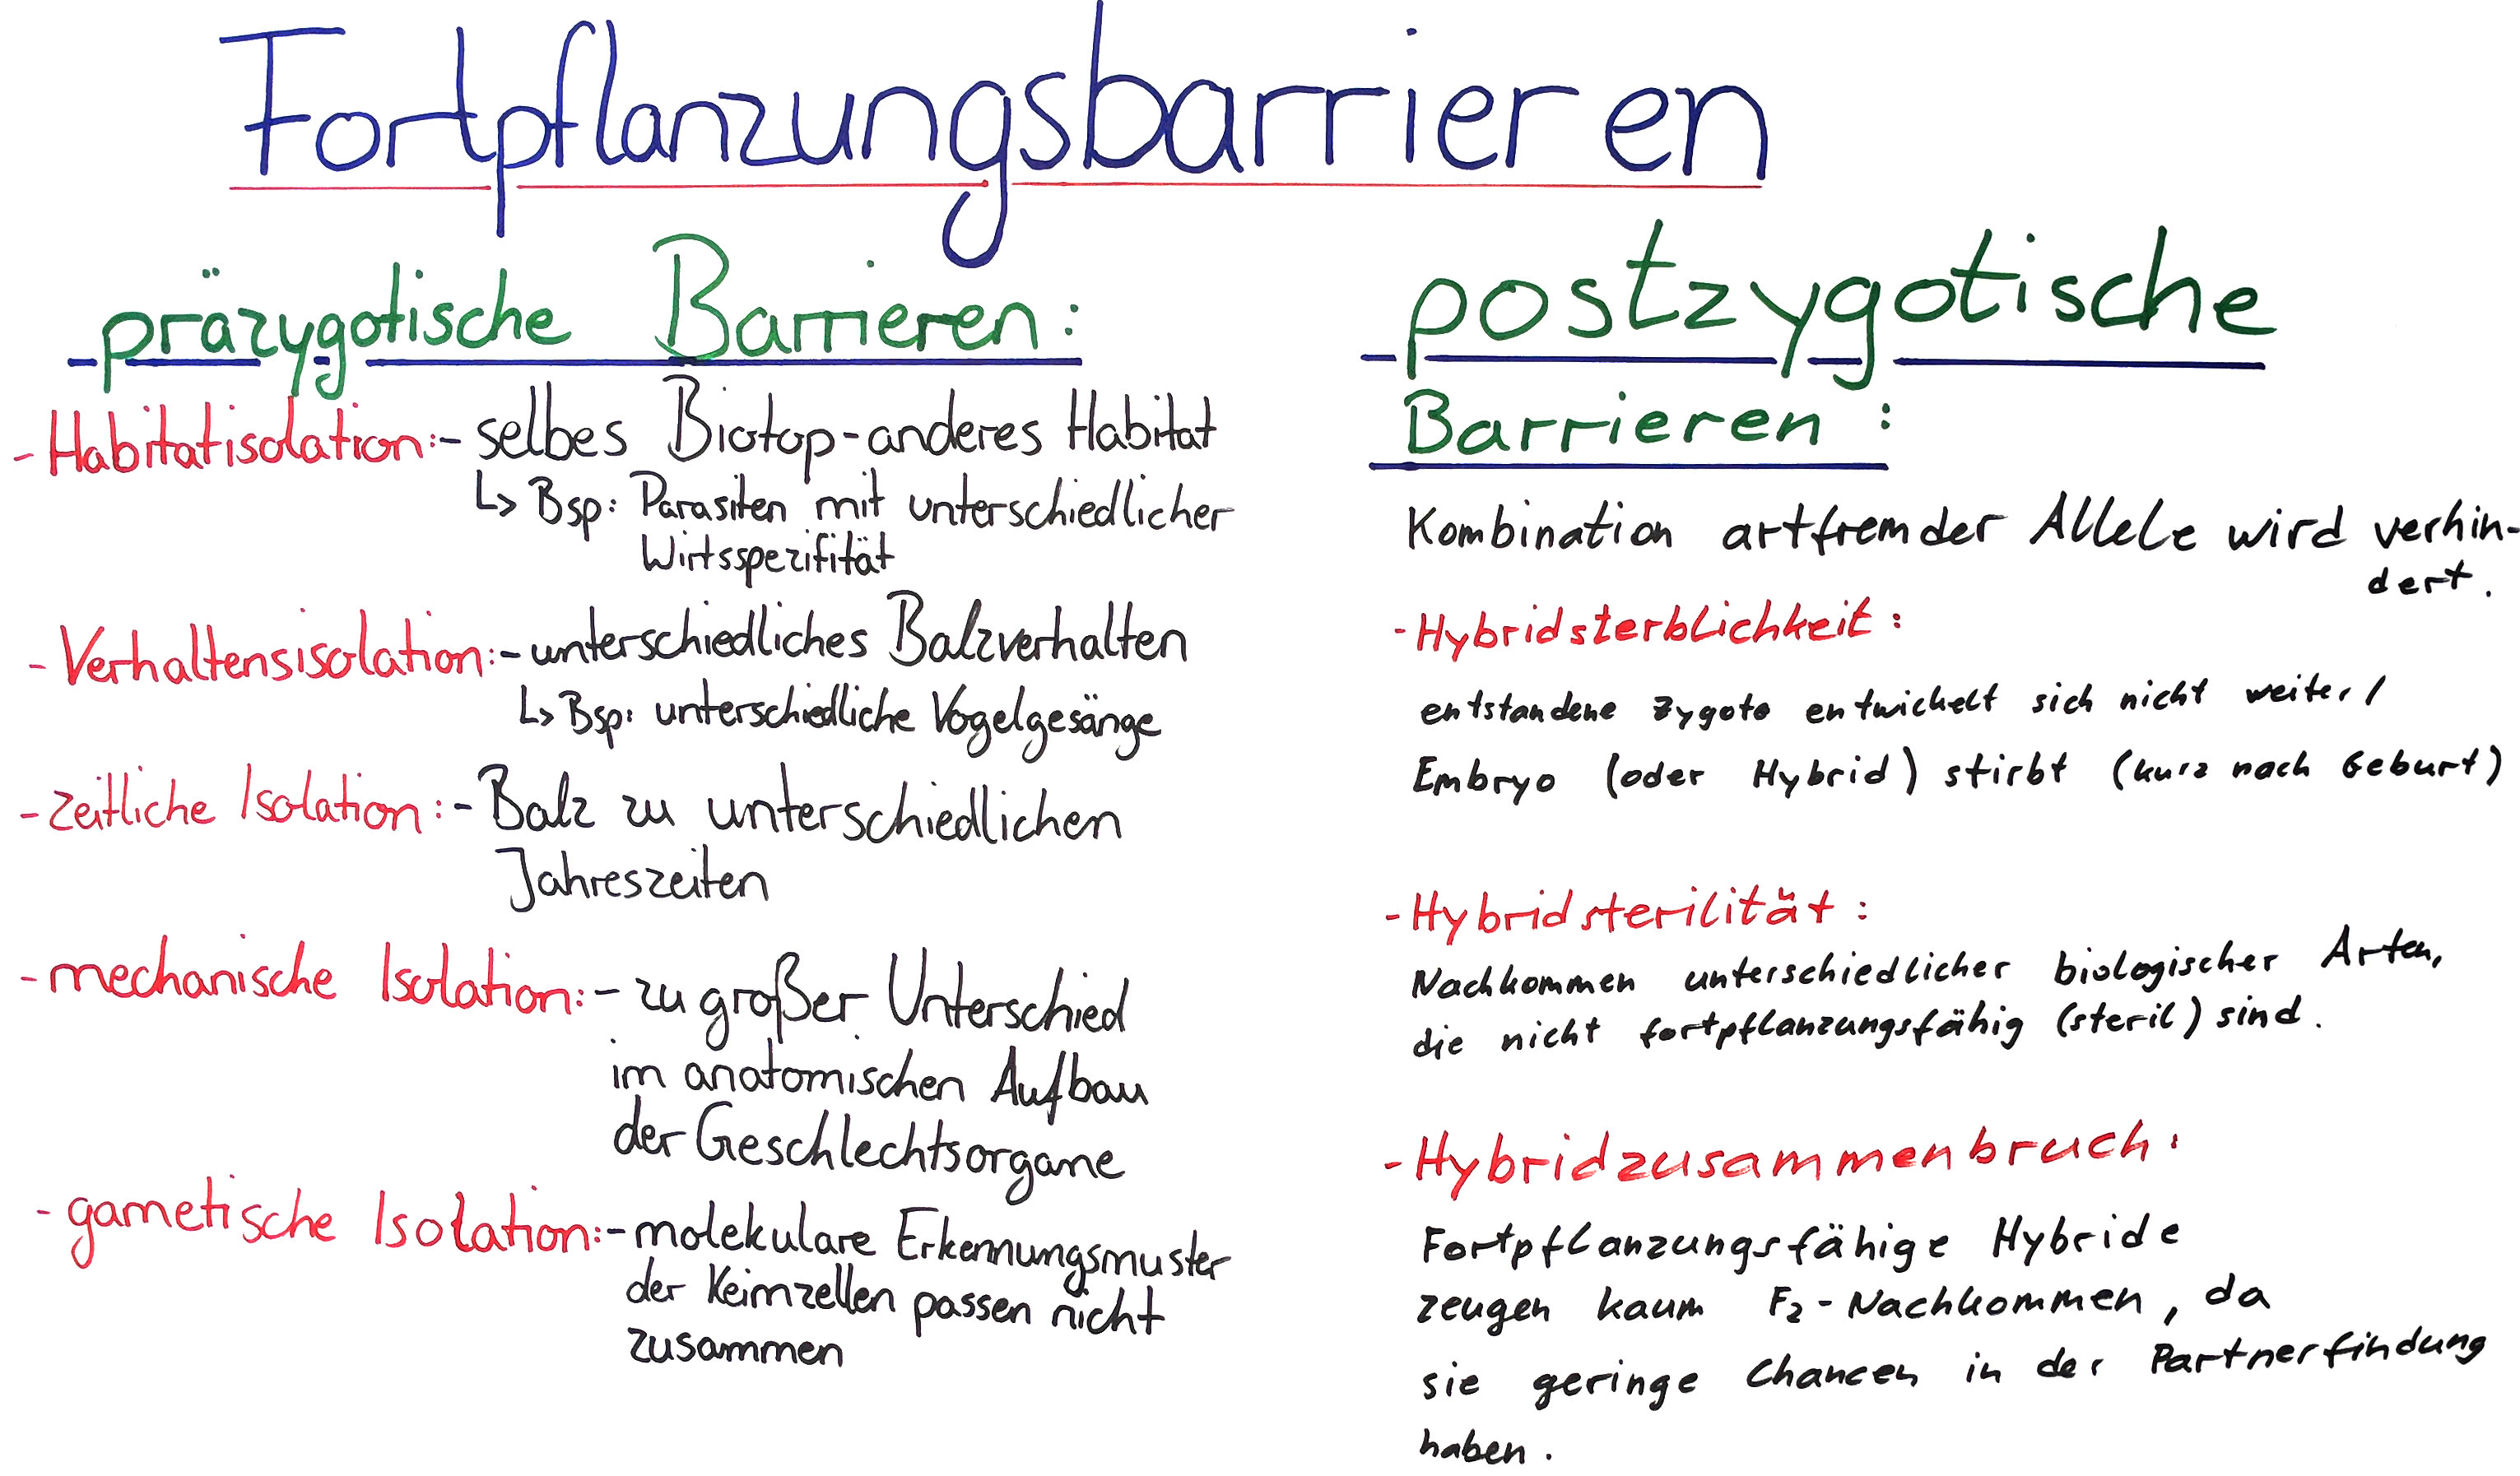 Fortpflanzungsbarrieren
präzygotische Barrieren:
- Habitatisolation: - selbes Biotop - anderes Habitat
↳ Bsp: Parasiten mit unterschiedlicher
Wirtsspezifität
- Verhaltensisolation: - unterschiedliches Balzverhalten
↳ Bsp: unterschiedliche Vogelgesänge
- zeitliche Isolation: - Balz zu unterschiedlichen
Jahreszeiten
- mechanische Isolation: - zu großer Unterschied
im anatomischen Aufbau
der Geschlechtsorgane
- gametische Isolation: - molekulare Erkennungsmuster
der Keimzellen passen nicht
zusammen
postzygotische
Barrieren:
Kombination artfremder Allele wird verhin-
dert.
- Hybridsterblichkeit:
entstandene Zygote entwickelt sich nicht weiter /
Embryo (oder Hybrid) stirbt (kurz nach Geburt)
- Hybridsterilität:
Nachkommen unterschiedlicher biologischer Arten,
die nicht fortpflanzungsfähig (steril) sind.
- Hybridzusammenbruch:
Fortpflanzungsfähige Hybride
zeugen kaum F₂-Nachkommen, da
sie geringe Chancen in der Partnerfindung
haben.